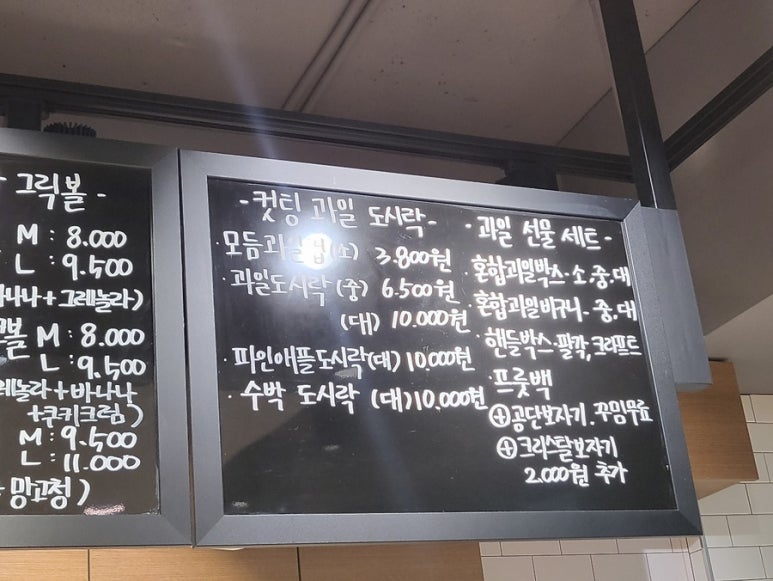 그릭볼 -
M : 8.000
L : 9.500
바나나 + 그레놀라 )
볼 M : 8.000
L : 9.500
그레놀라 + 바나나
+쿠키크림 )
M : 9.500
L : 11.000
망고청 )
- 컷팅 과일 도시락 -
· 모듬과일컵(소) 3.800원
· 과일도시락 (중) 6.500원
(대) 10.000원
· 파인애플도시락(대) 10.000원
· 수박 도시락 (대) 10.000원
· 과일 선물 세트 -
· 혼합과일박스 - 소. 중. 대
· 혼합과일바구니 - 중. 대
· 핸들박스 - 팔각, 크라프트
· 프룻백
⊕공단보자기. 꾸밈무료
⊕크리스탈보자기
2.000원 추가